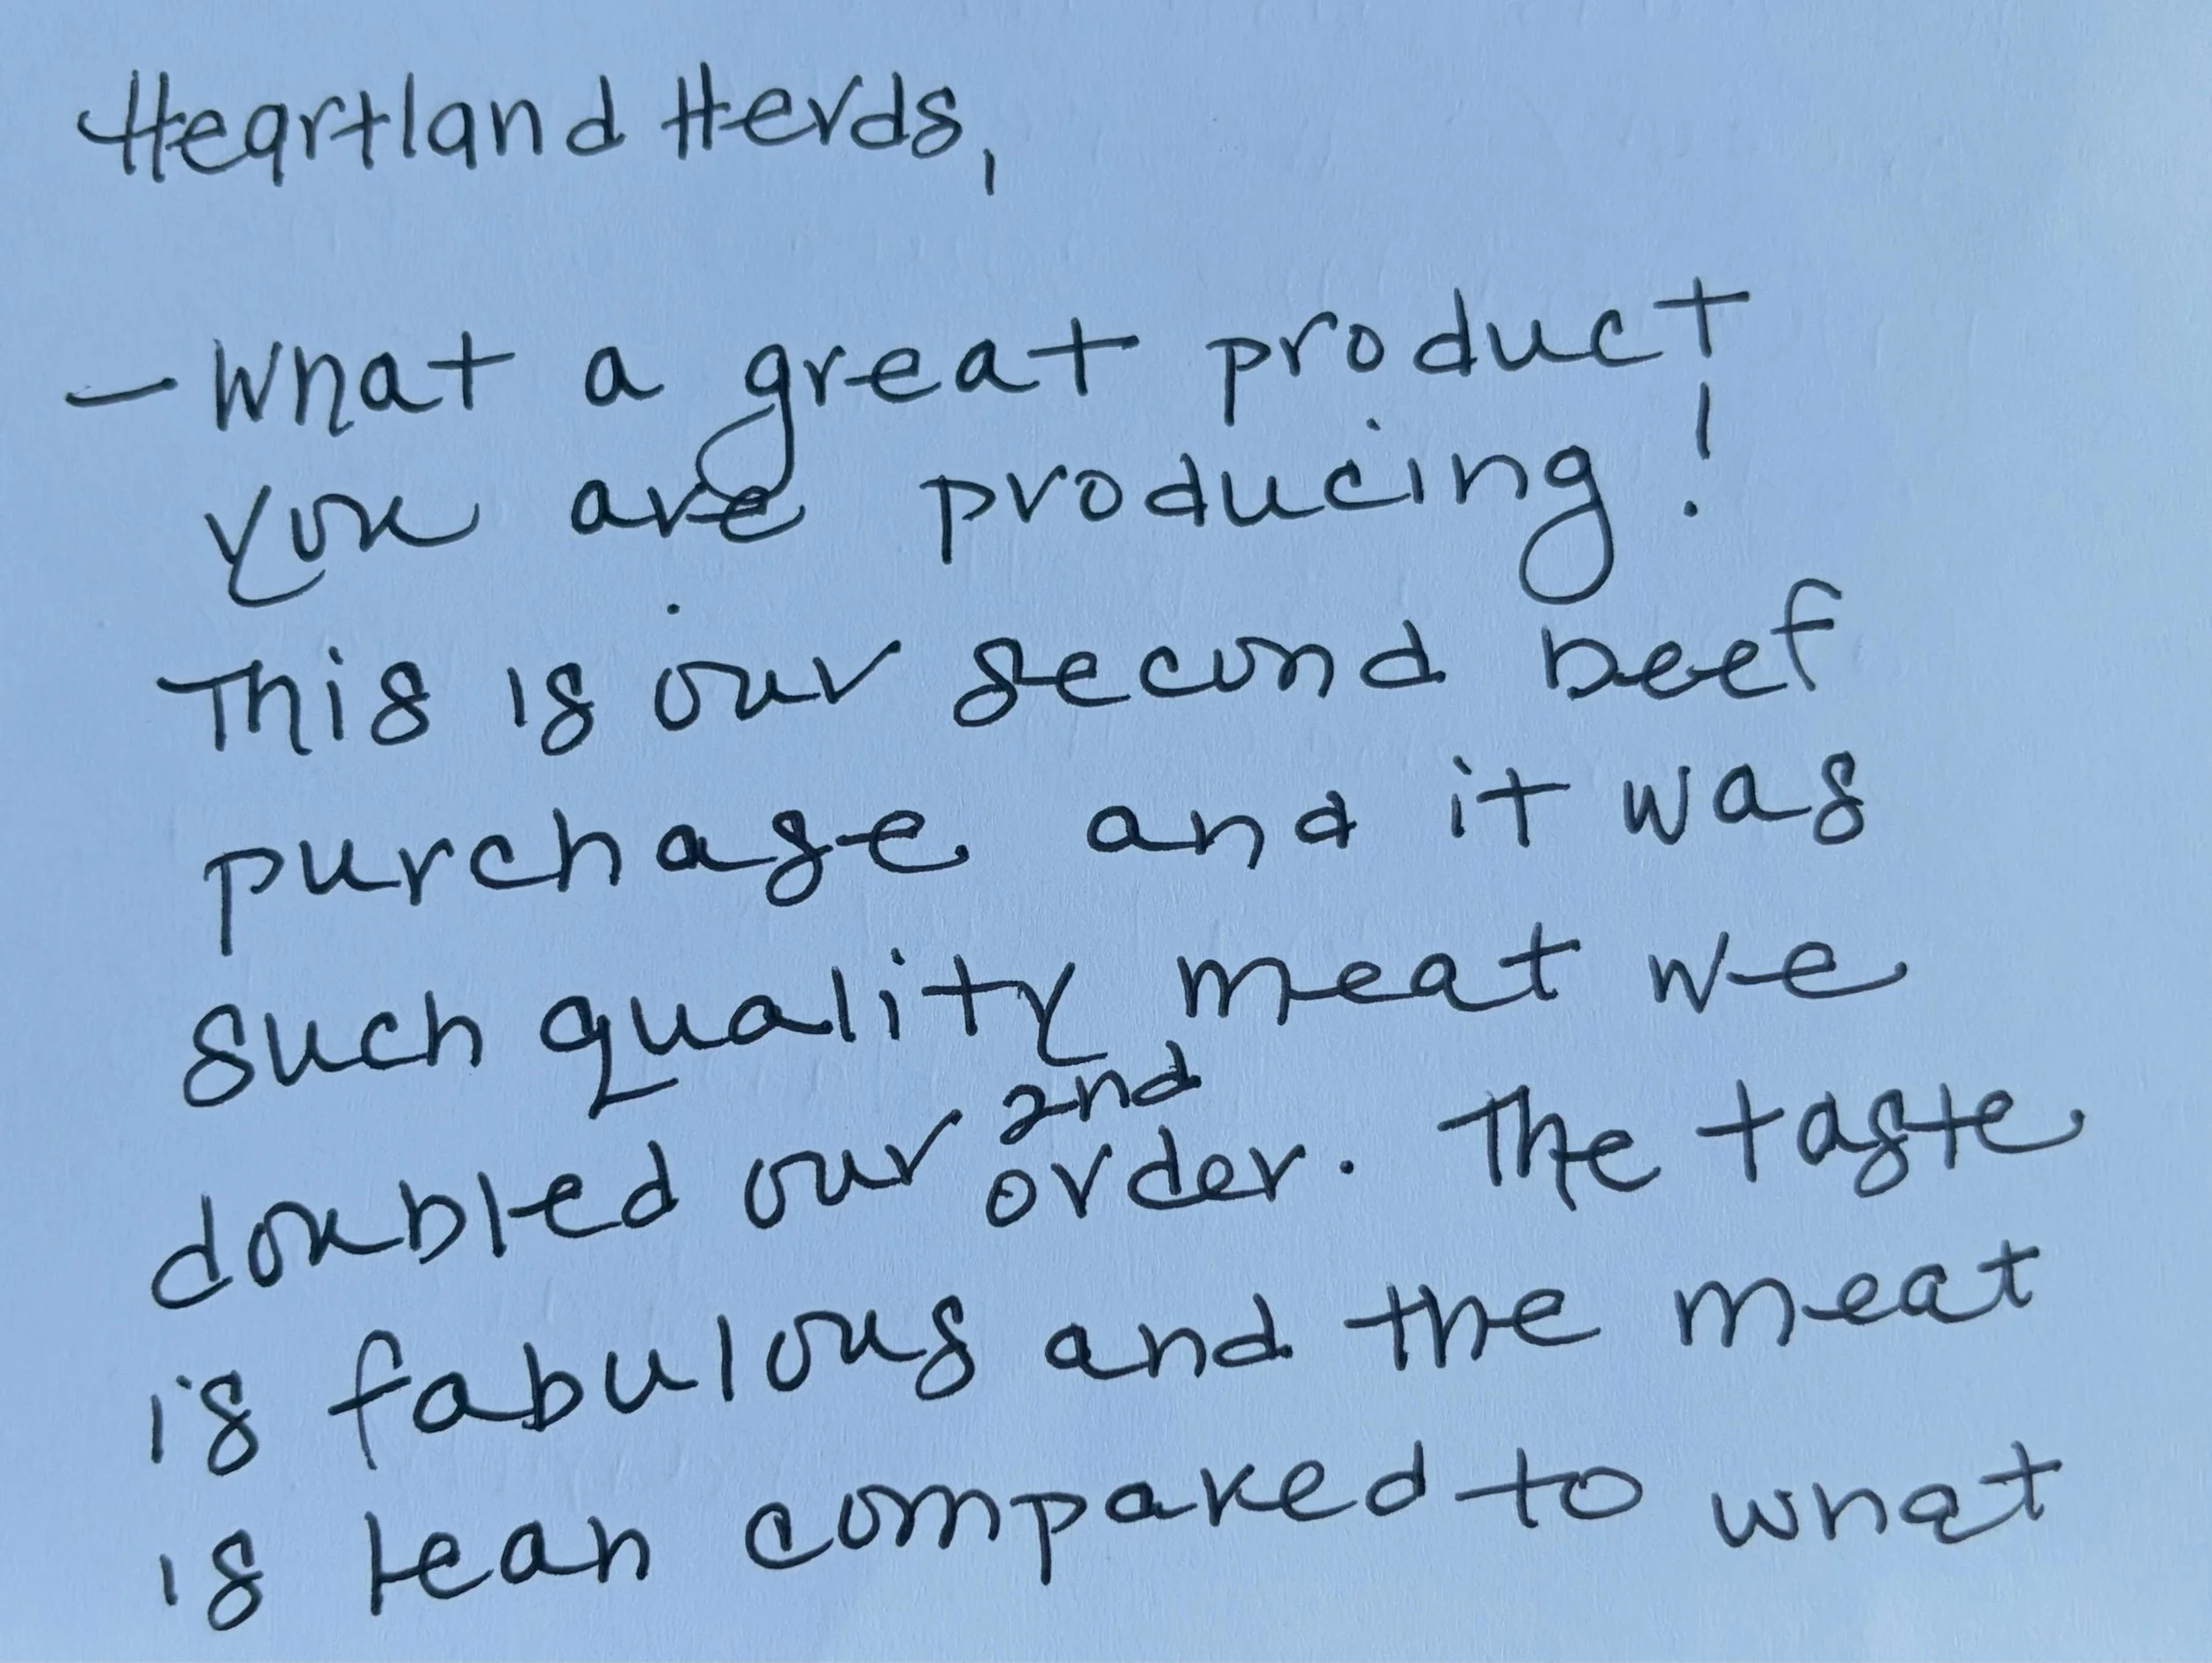 Heartland Herds,
- What a great product
you are producing!
This is our second beef
purchase and it was
such quality meat we
doubled our 2nd order. The taste
is fabulous and the meat
is lean compared to what